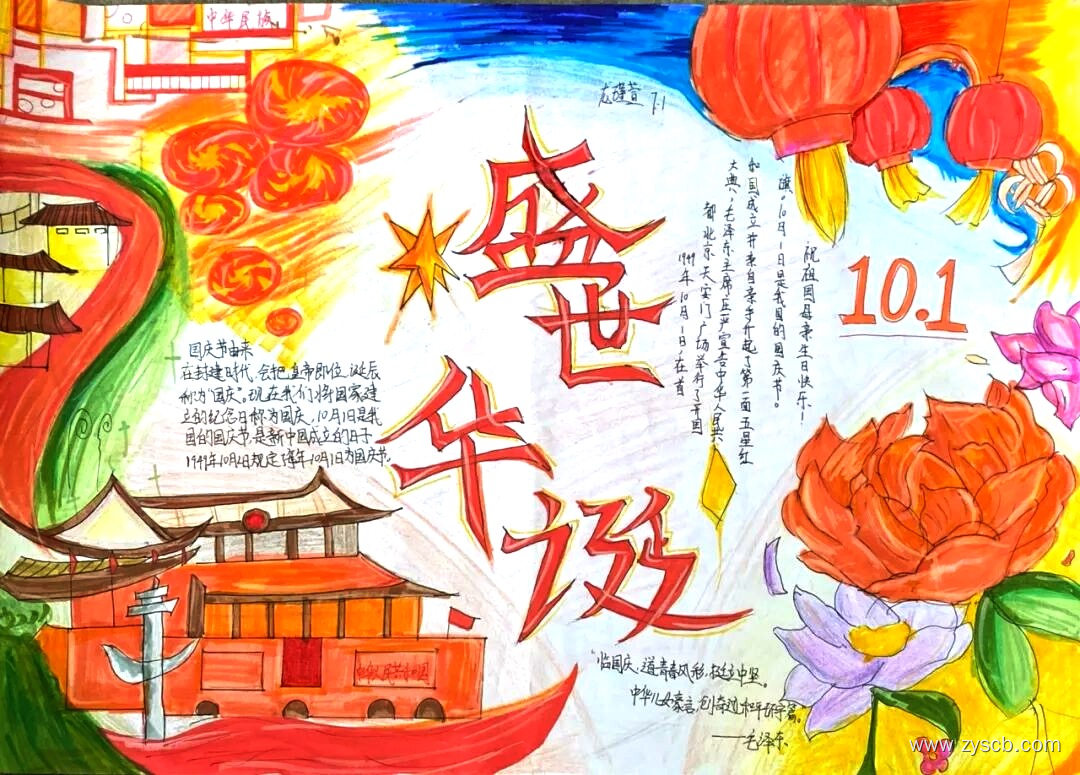 中华民族
龙瑾萱 7.1
盛世
华诞
10.1
祝祖国母亲生日快乐!
旗。10月1日是我国的国庆节。
和国成立并亲自亲手升起了第一面五星红
大典,毛泽东主席庄严宣告中华人民共
都北京天安门广场举行了开国
1949年10月1日在首
国庆节由来
在封建时代,会把皇帝即位、诞辰
称为"国庆"。现在我们将国家建
立的纪念日称为国庆,10月1日是我
国的国庆节,是新中国成立的日子
1949年10月2日规定每年10月1日为国庆节.
中华人民共和国
"临国庆,道青春风彩,挺立中坚。
中华儿女豪言,创奇迹
——毛泽东
www.zyscb.com